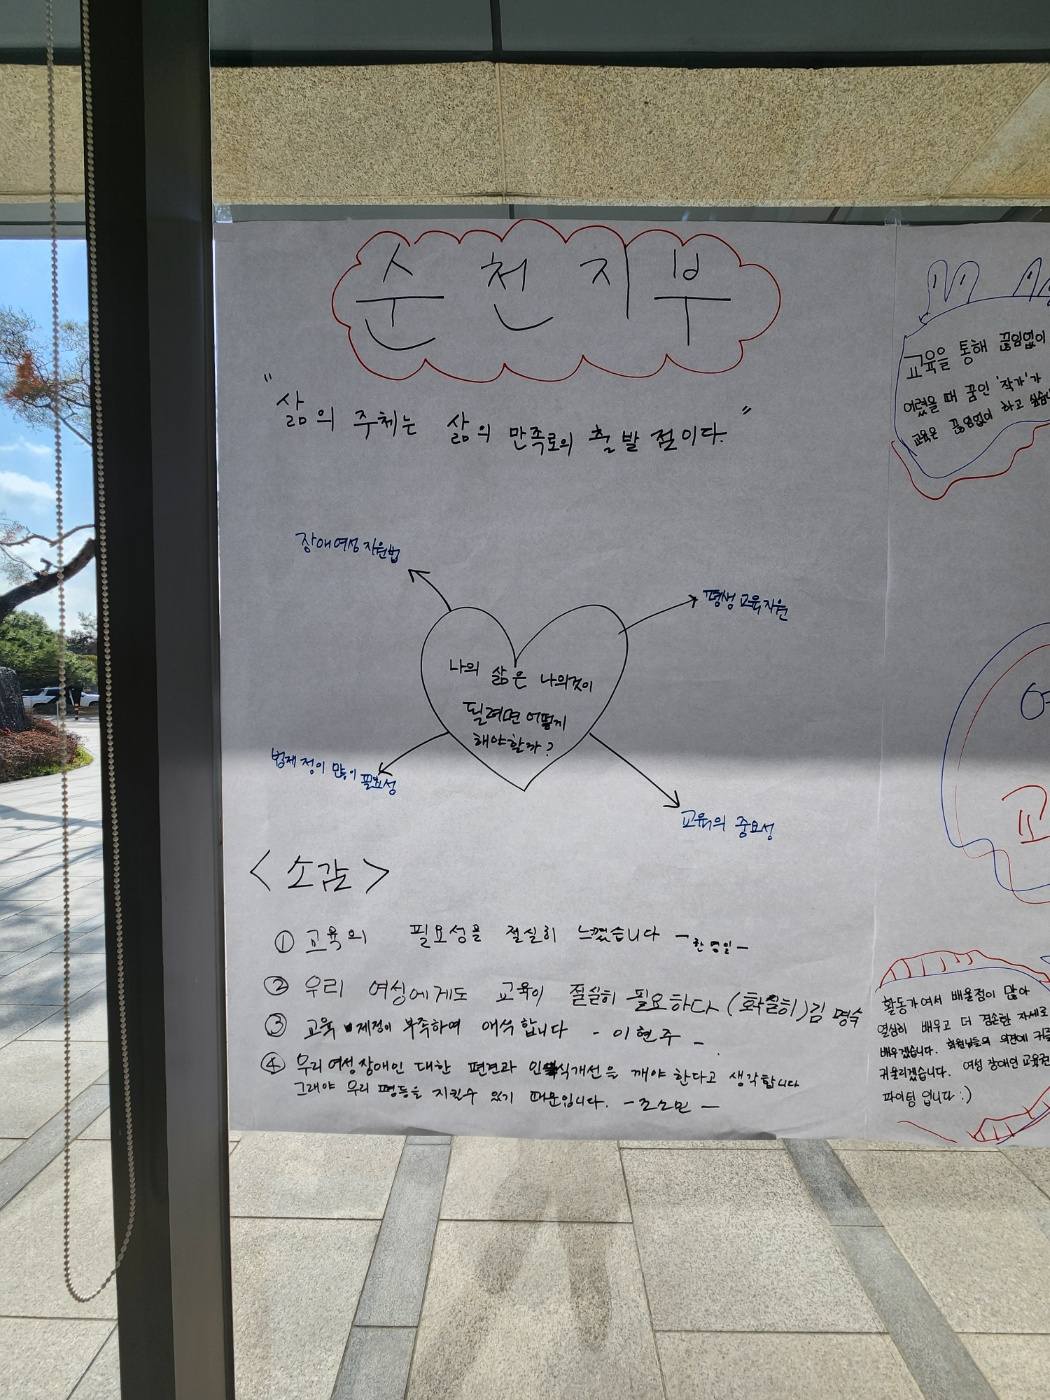 순천지부
"삶의 주체는 삶의 만족로의 출발점이다."
장애여성지원법
평생교육지원
나의 삶은 나의것이
될려면 어떻게
해야할까?
법제정이 많이 필요성
교육의 중요성
<소감>
① 교육의 필요성을 절실히 느꼈습니다 -한영일-
② 우리 여성에게도 교육이 절실히 필요하다 (확실히) 김명숙
③ 교육 제정이 부족하여 애석합니다 - 이현주 -
④ 우리여성장애인 대한 편견과 인식개선을 깨야 한다고 생각합니다
그래야 우리 평등을 지킬수 있기 때문입니다. - 조소민 -
교육을 통해 끊임없이
어렸을 때 꿈인 '작가'가
교육은 끊임없이 하고 싶습니
교
활동가여서 배울점이 많아
열심히 배우고 더 겸손한 자세로
배우겠습니다. 회원님들의 의견에 귀를
귀울리겠습니다. 여성 장애인 교육권
파이팅 입니다 :)